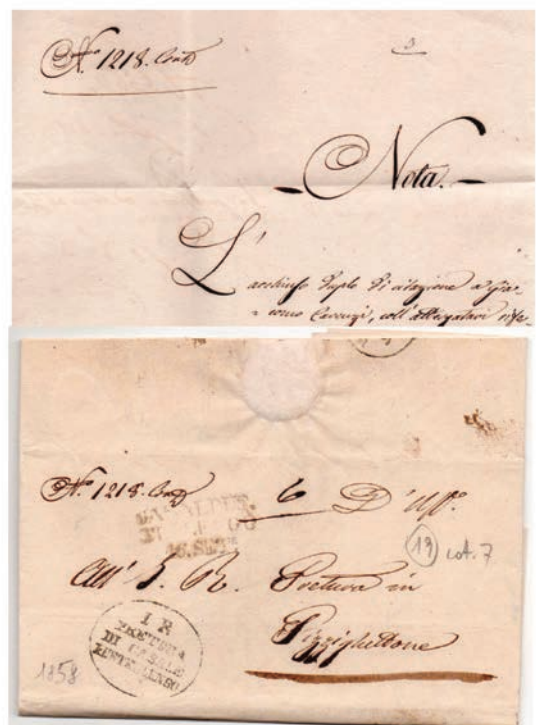 N.º 1218. Cand
3
Nota.
L'
acchiuso Duplo di citazione a Gia-
-como Cavugi, coll' allegatavi rife-
N.º 1218. Cand
6 D'Uff.º
CASALPUS.
16. SET.
19 cot. 7
All' I. R. Pretura in
Pizzighettone
I R
PRETURA
DI CASALE
PUSTERLENGO
1858